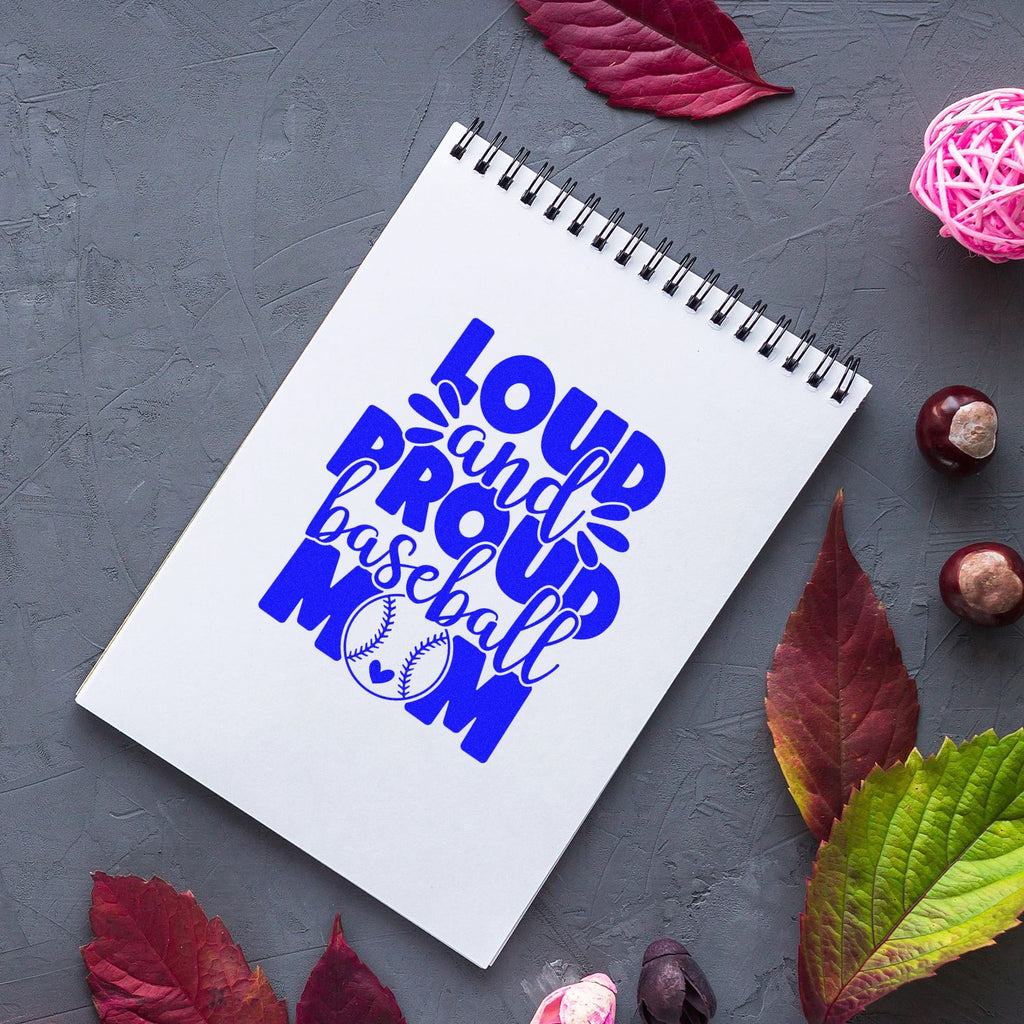 LOUD
and
PROUD
baseball
MOM